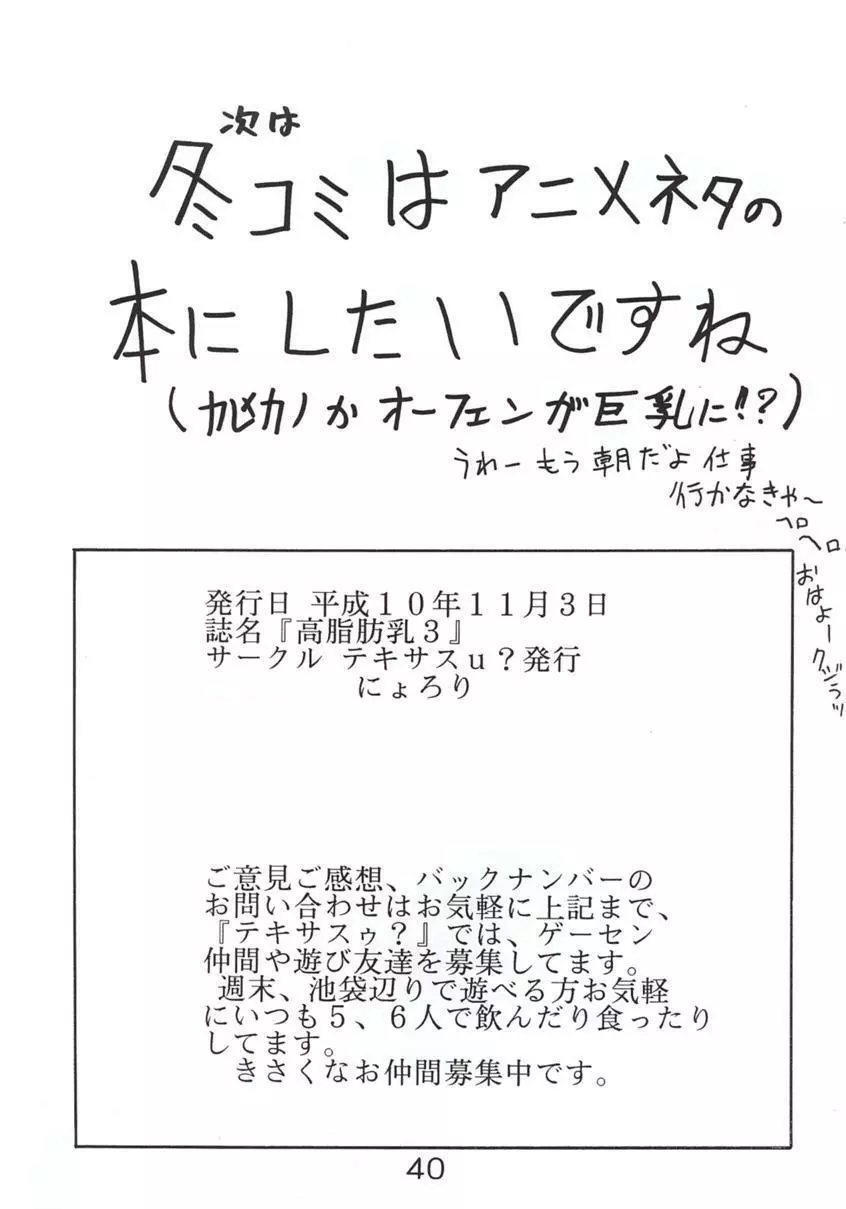 次は
冬コミはアニメネタの
本にしたいですね
か オーフェンが巨乳に!!?)
うわー もう朝だよ 仕事
行かなきゃ〜
ヘロ
ヘロ
おはよー
発行日 平成10年11月3日
誌名『高脂肪乳3』
サークル テキサスu?発行
にょろり
ご意見ご感想、バックナンバーの
お問い合わせはお気軽に上記まで、
『テキサスゥ?』では、ゲーセン
仲間や遊び友達を募集してます。
週末、池袋辺りで遊べる方お気軽
にいつも5、6人で飲んだり食ったり
してます。
きさくなお仲間募集中です。
40